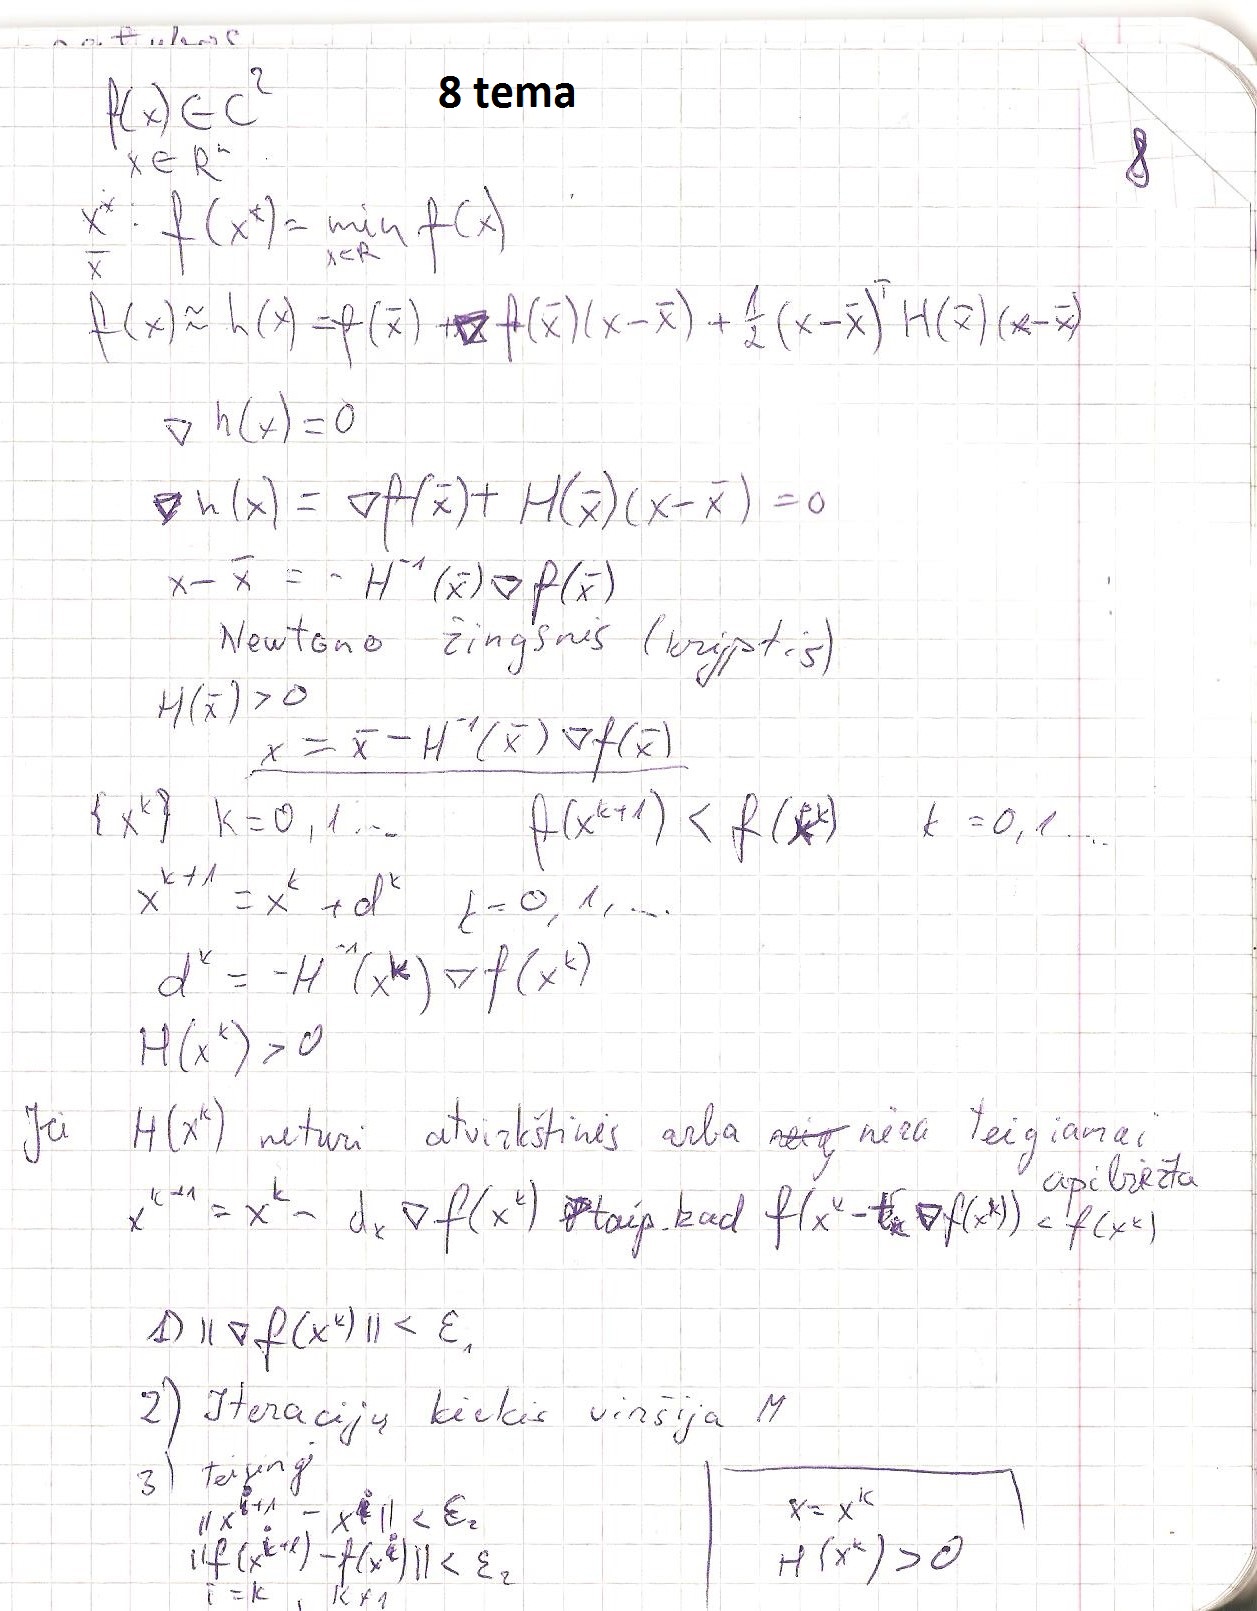 8 tema
8
f(x) ∈ C²
x ∈ Rⁿ
x* : f(x*) = min f(x)
x∈R
x̄
f(x) ≈ h(x) = f(x̄) + ∇f(x̄)(x-x̄) + 1/2 (x-x̄)ᵀ H(x̄)(x-x̄)
∇h(x) = 0
∇h(x) = ∇f(x̄) + H(x̄)(x-x̄) = 0
x-x̄ = -H⁻¹(x̄)∇f(x̄)
Newtono žingsnis (kryptis)
H(x̄) > 0
x = x̄ - H⁻¹(x̄)∇f(x̄)
{xᵏ} k=0,1... f(xᵏ⁺¹) < f(xᵏ) k=0,1...
xᵏ⁺¹ = xᵏ + dᵏ k=0,1,...
dᵏ = -H⁻¹(xᵏ)∇f(xᵏ)
H(xᵏ) > 0
Jei H(xᵏ) neturi atvirkštinės arba nėra teigiamai
apibrėžta
xᵏ⁺¹ = xᵏ - dₖ ∇f(xᵏ) taip kad f(xᵏ - tₖ ∇f(xᵏ)) < f(xᵏ)
1) ||∇f(xᵏ)|| < ε₁
2) Iteracijų kiekis viršija M
3) teisingi
||xⁱ⁺¹ - xⁱ|| < ε₂
||f(xⁱ⁺¹) - f(xⁱ)|| < ε₂
i = k, k+1
x = xᵏ
H(xᵏ) > 0